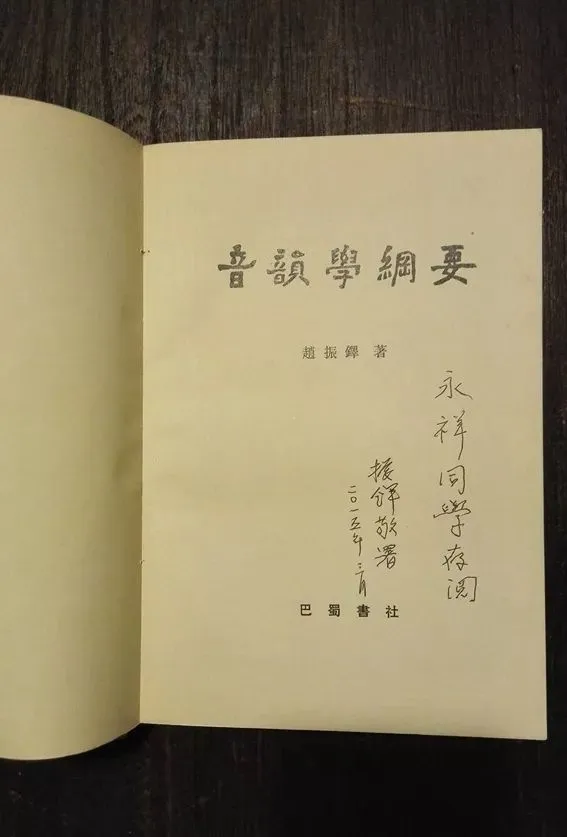 音韻學綱要
趙振鐸 著
永祥同學存閱
振鐸敬署
二〇一五年三月
巴蜀書社